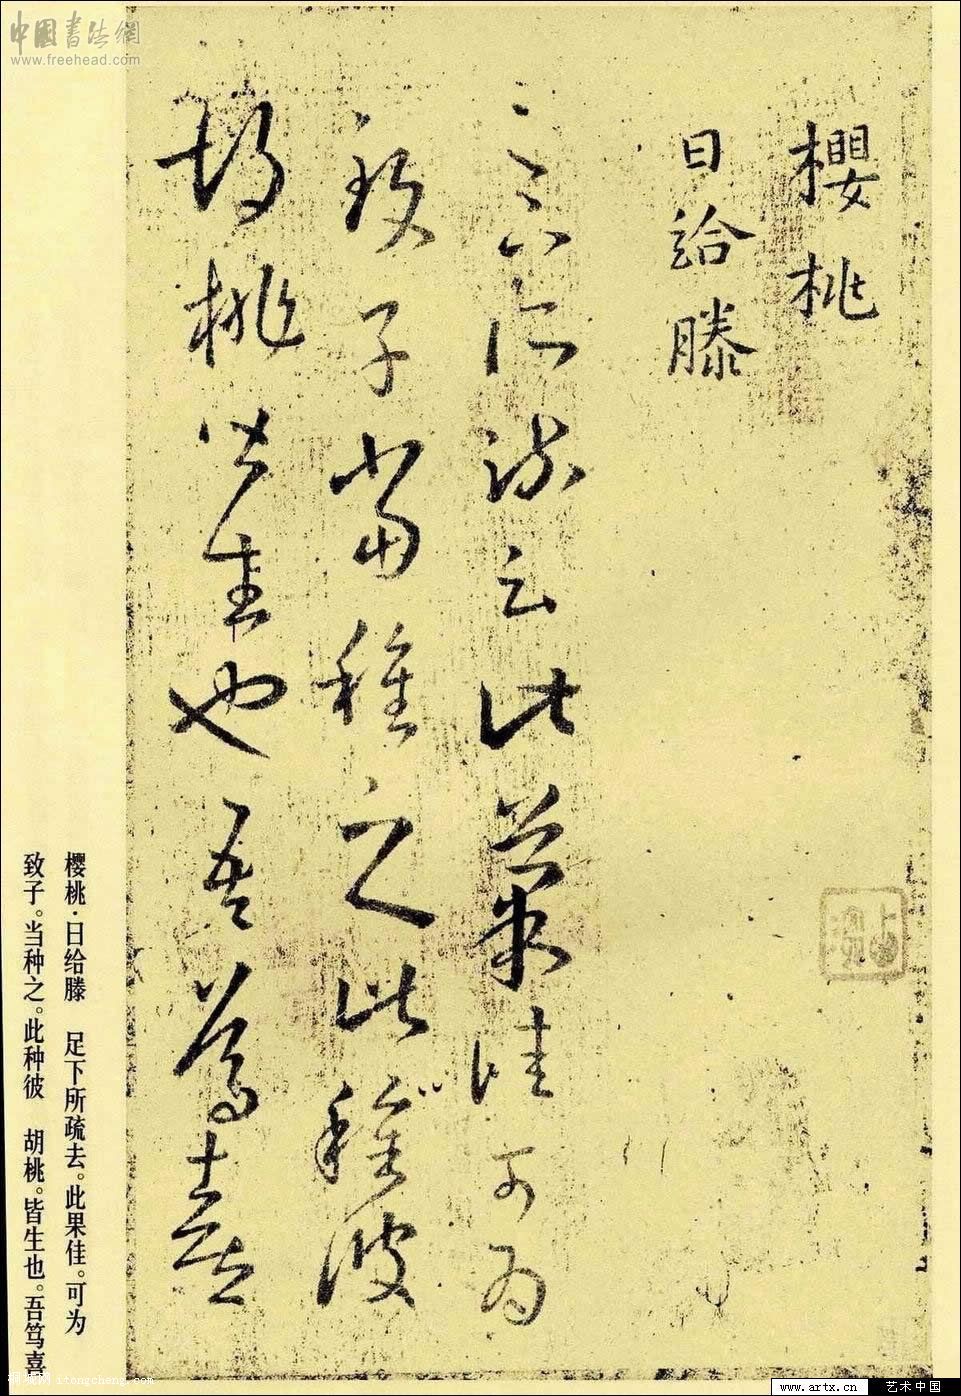 中國書法網
www.freehead.com
櫻桃
日給滕
足下所疏云此菓佳可为
致子當種之此種彼
胡桃皆生也吾篤喜
樱桃·日给滕　足下所疏去。此果佳。可为
致子。当种之。此种彼　胡桃。皆生也。吾笃喜
itongcheng.com
www.artx.cn 艺术中国